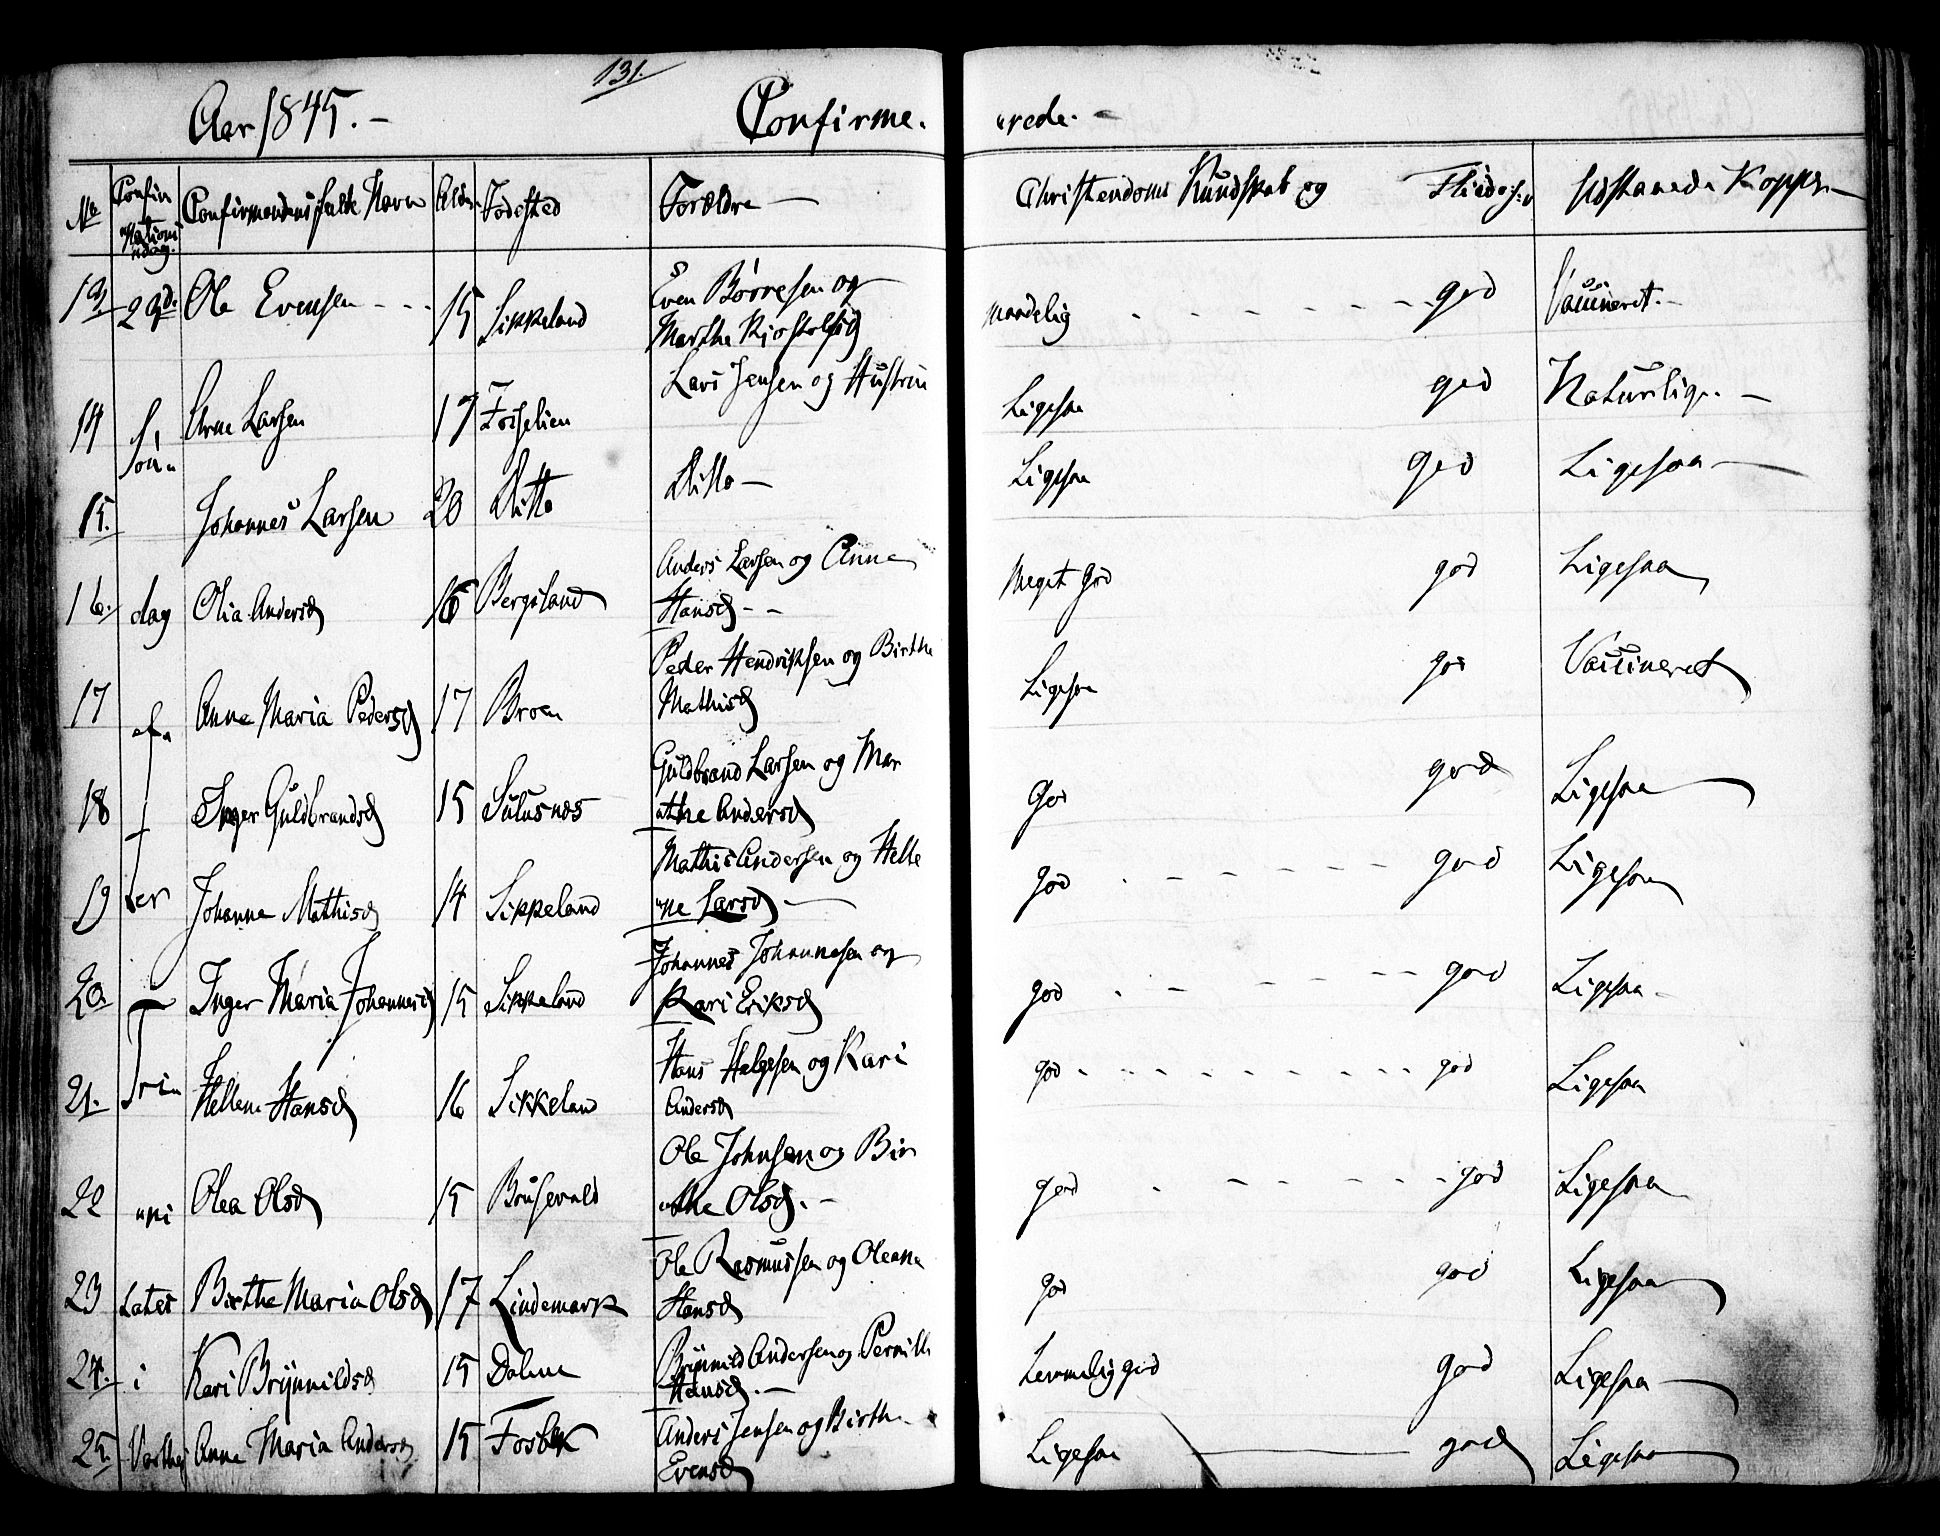 131.
Aar 1845.- Confirme. "rede.-
No Confir"mations"dag. Confirmandens fulde Navn Alder Fødested Forældre — Christendoms Kundskab og Flid Udstaaede Kopper
13 23d. Ole Evensen - - - 15 Sikkeland Even Børresen og Marthe Kjostolfsd maadelig - - - - - - god Vaccineret.-
14 Søn" Arne Larsen 17 Foshelien Lars Jensen og Hustrue Ligesaa god Naturlige. —
15. Johannes Larsen 20 Ditto Ditto — Ligesaa god Ligesaa —
16. dag Olia Andersd 16 Bergsland Anders Larsen og Anne Hansd - - Meget god god Ligesaa
17 ef" Anne Maria Pedersd 17 Broen Peder Hendriksen og Birthe Mathisd Ligesaa god Vaccineret
18 Inger Guldbrandsd 15 Sulusnæs Guldbrand Larsen og Mar"the Andersd God god Ligesaa
19 ter Johanne Mathisd 14 Sikkeland Mathis Andersen og Helle"ne Larsd - — god - - - - - - god Ligesaa
20 Inger Maria Johannesd 15 Sikkeland Johannes Johannesen og Kari Eriksd god - - - - - - god Ligesaa -
21. Tri" Hellene Hansd 16 Sikkeland Hans Helgesen og Kari Andersd god - - - - - - - - god Ligesaa
22 "ni Olea Olsd 15 Brusevold Ole Johnsen og Bir"the Olsd. - god - - - - - - god Ligesaa
23 tates Birthe Maria Olsd 17 Lindemark Ole Rasmussen og Oleane Hansd god god Ligesaa
24. i Kari Brynnildsd 15 Dalene Brynnild Andersen og Pernille Hansd. — temmelig god god Ligesaa —
25. Anne Maria Andersd 15 Fosbæk Anders Jensen og Birthe Evensd Ligesaa — god Ligesaa